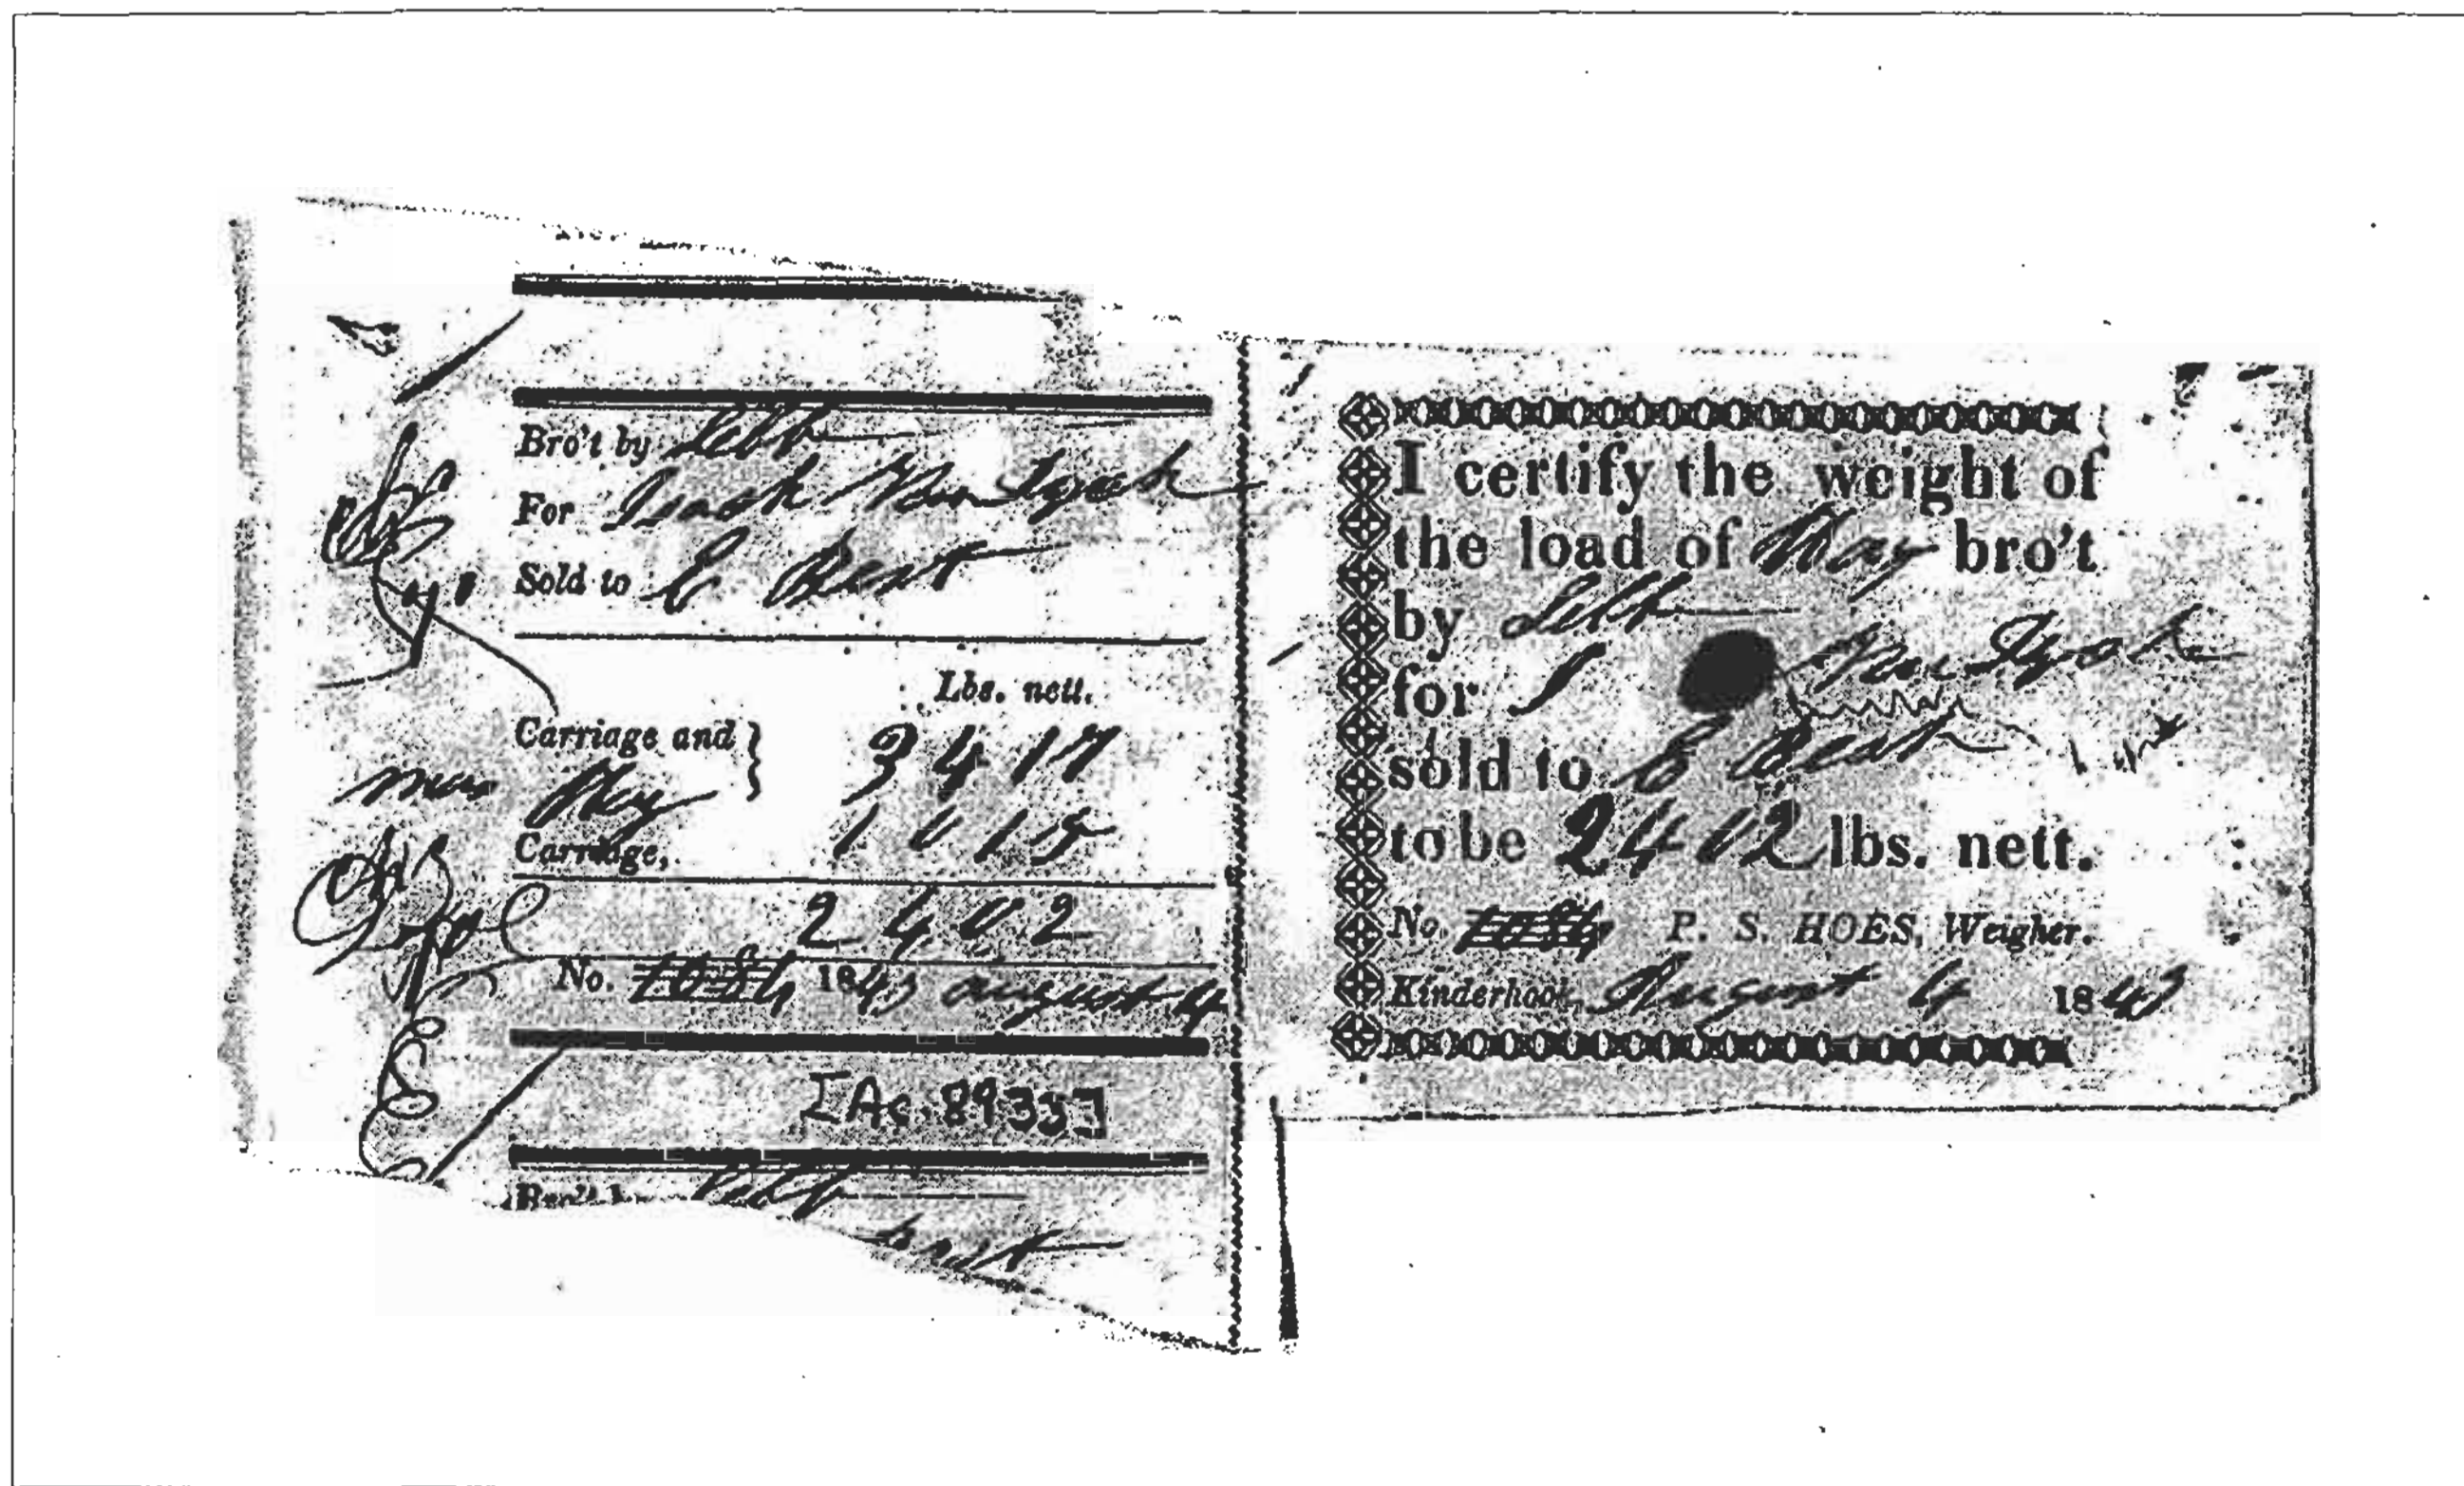 Bro't by Self
For Isaak Van Dyck
Sold to E Best
Lbs. nett.
Carriage and }
Hay
3417
Carriage,
1015
2402
No. 1084 1843 august 4
[Ac. 8933]
Bro't by Self
I certify the weight of
the load of Hay bro't
by Self
for I Van Dyck
sold to E Best
to be 2402 lbs. nett.
No. 1084 P. S. HOES, Weigher.
Kinderhook, August 4 1843